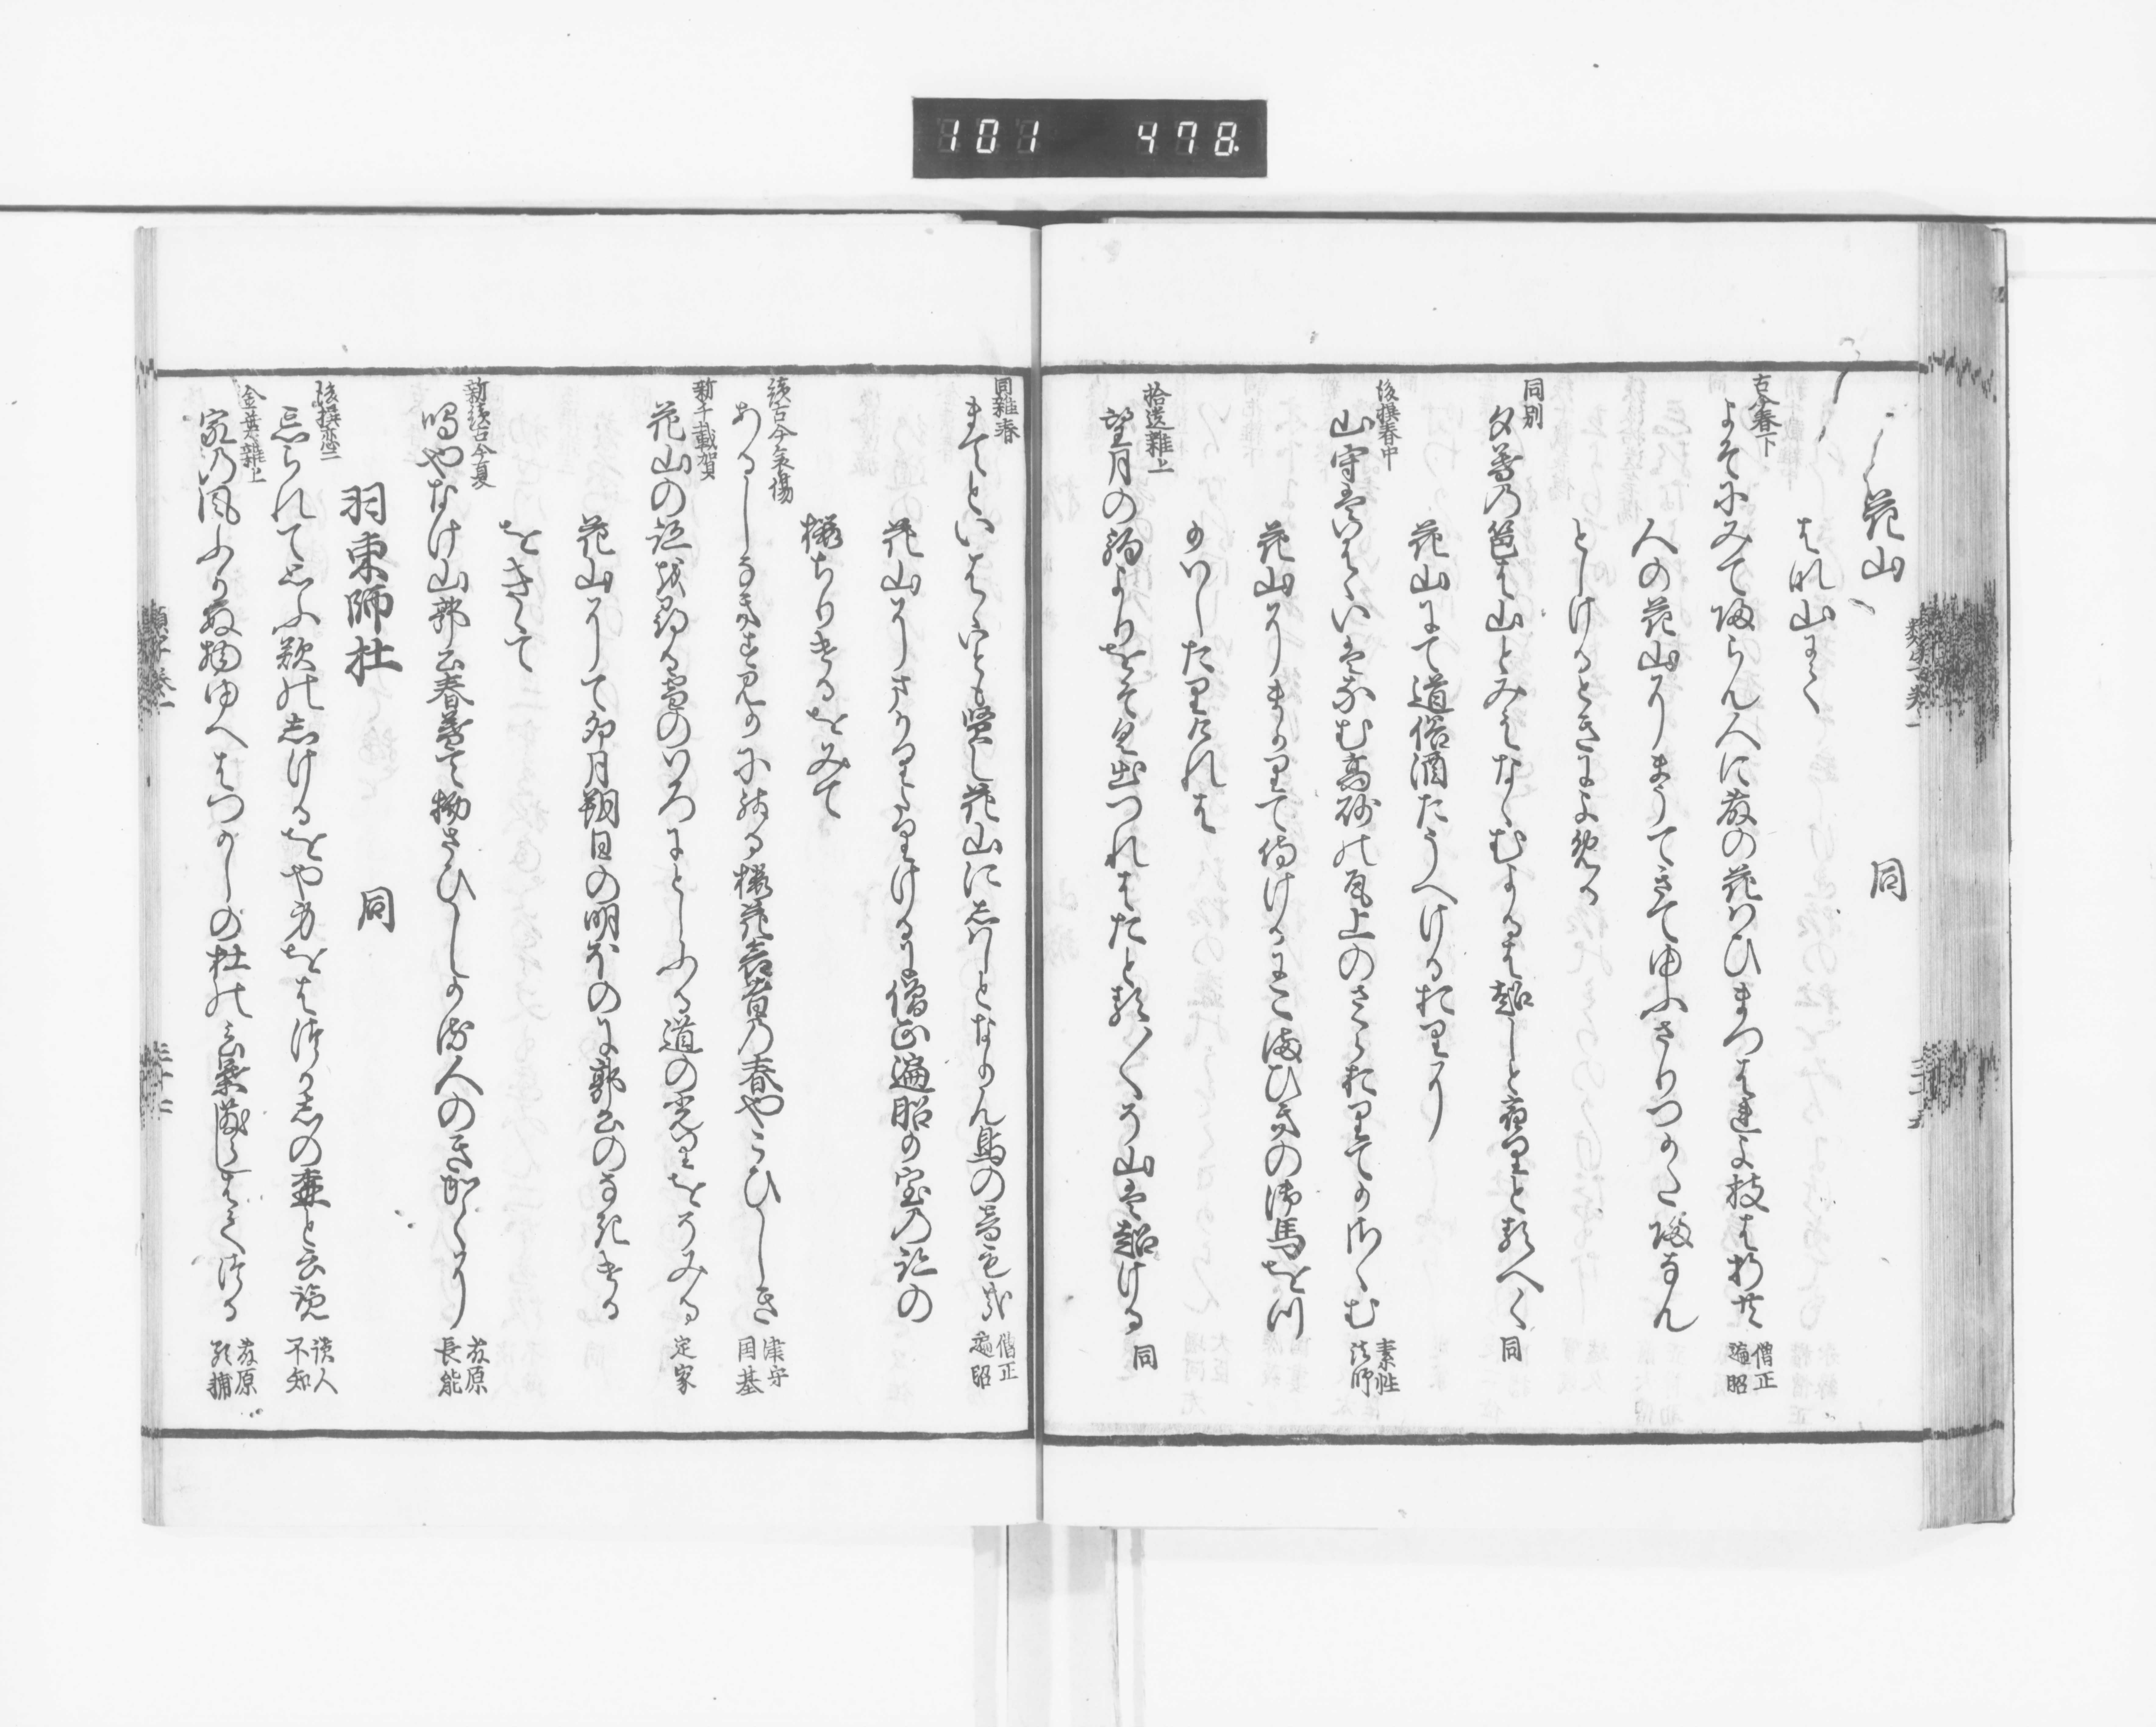 101 478
花山 同
はな山にて
古今春下
よそにみて帰らん人に藤の花はひまつはれよ枝はおる共 僧正遍昭
人の花山にまうてきてゆふさりつかた帰なん
としけるときによめる
同別
夕暮の籬は山とみえななむよるは越しと宿りとるへく 同
花山にて道俗酒たうへけるおりに
後撰春中
山守はいはゝいはなむ高砂の尾上のさくらおりてかさゝむ 素性法師
花山にまかりて侍けるに駒ひきの御馬を
つかはしたりけれは
拾遺雑上
望月の駒よりをそく出つれはたとる〳〵そ山は越ける 同
類字巻一
同雑春
まてといはゝいとも賢し花山にしはしとなかん鳥の音も哉 僧正遍昭
花山にまかりたりけるに僧正遍昭か室の跡の
桜ちりけるをみて
続古今哀傷
あるしなきすみかに残る桜花あはれ昔の春やこひしき 津守国基
新千載賀
花山の跡を尋る雪のいろにとしふる道の光をそみる 定家
花山にて卯月朔日の明ほのに郭公のなきける
をきゝて
新続古今夏
鳴やなけ山郭公春暮て物さひしかる人のきかくに 藤原長能
羽束師杜 同
後撰恋二
忘られて思ふ歎のしけるをや身をはつかしの森と云覧 読人不知
金葉雑上
家の風ふかぬ物ゆへはつかしの杜のこと葉散しはてつる 藤原顕輔
類字巻一